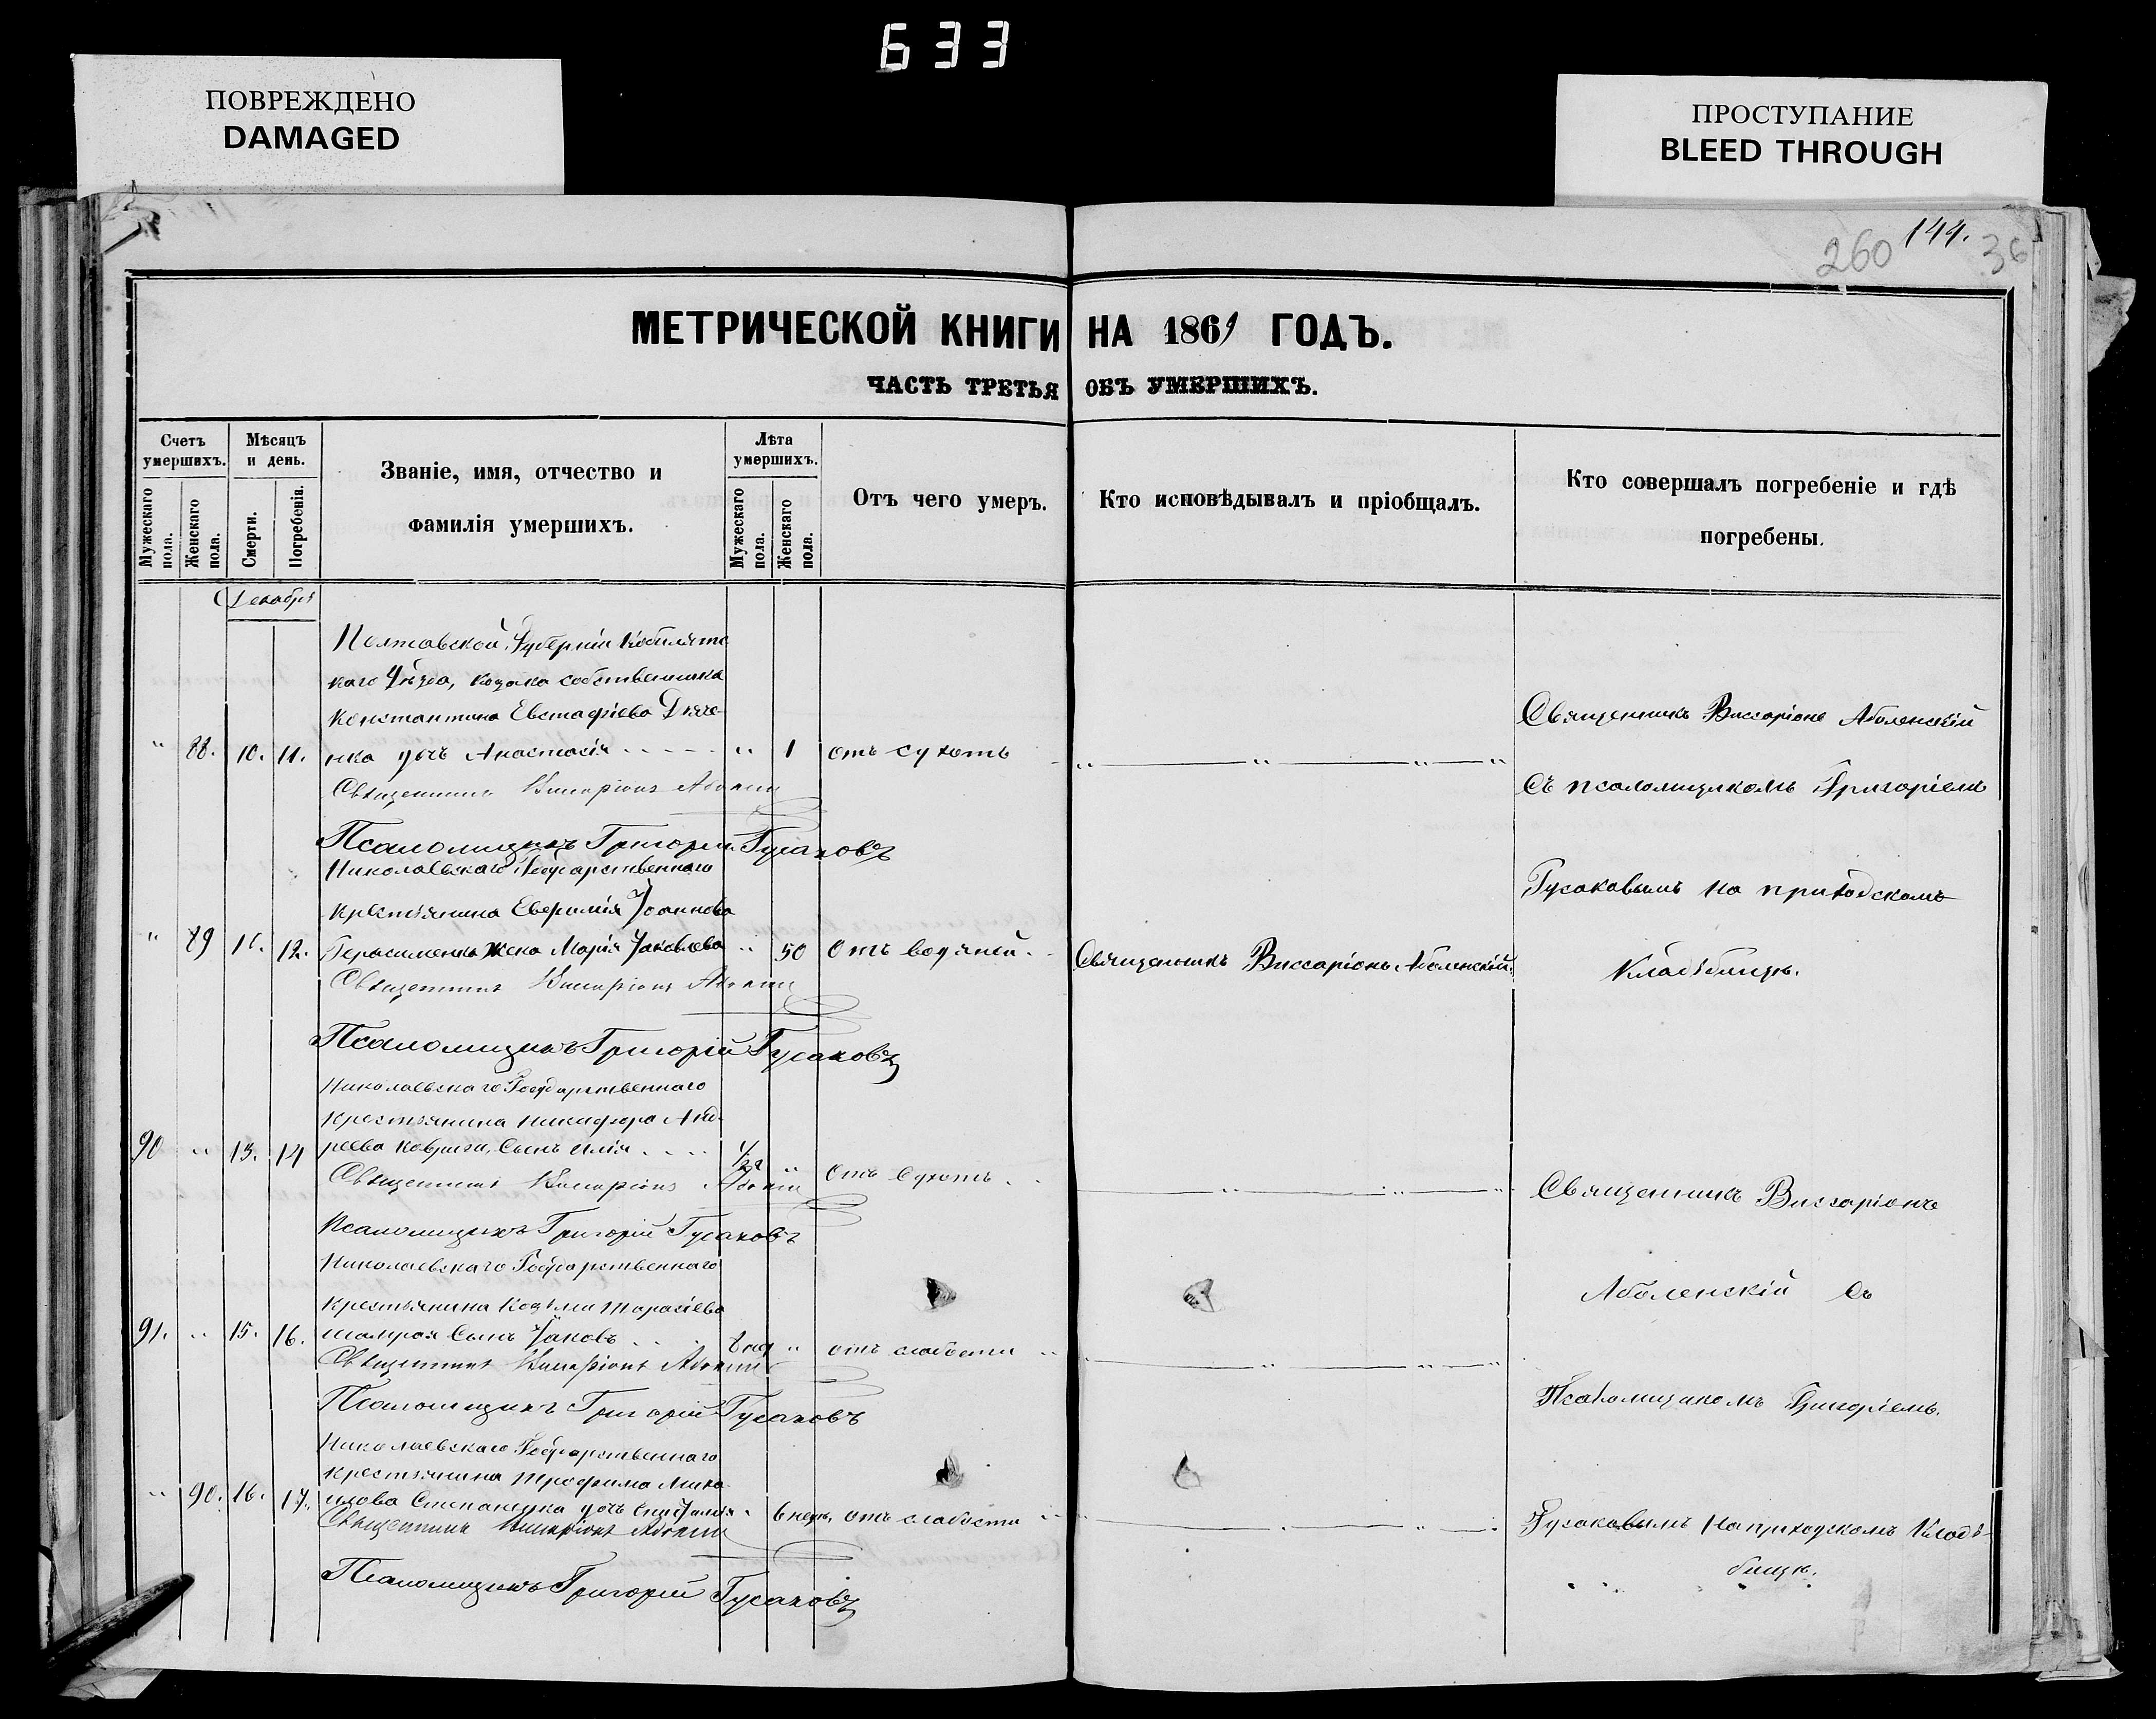 633
ПОВРЕЖДЕНО
DAMAGED
ПРОСТУПАНИЕ
BLEED THROUGH
260 144. 36
МЕТРИЧЕСКОЙ КНИГИ НА 1861 ГОДЪ.
ЧАСТЬ ТРЕТЬЯ ОБЪ УМЕРШИХЪ.
Счетъ умершихъ.
Мужескаго пола.
Женскаго пола.
Мѣсяцъ и день.
Смерти.
Погребенія.
Званіе, имя, отчество и
фамилія умершихъ.
Лѣта умершихъ.
Мужескаго пола.
Женскаго пола.
Отъ чего умеръ.
Кто исповѣдывалъ и пріобщалъ.
Кто совершалъ погребеніе и гдѣ
погребены.
Декабря
Полтавской Губерніи Кобилятс
каго Уѣзда, козака собственника
Константина Евстафіева
" 88. 10. 11. дочь Анастасія " 1 отъ сухотъ
Священникъ Виссаріонъ
Псаломщикъ Григорій Гусаковъ
Священникъ Виссаріонъ Аболенскій
Съ псаломщикомъ Григоріемъ
Гусаковымъ на приходскомъ
Кладбищѣ.
Николаевскаго Государственнаго
крестьянина Евфимія Іоаннова
" 89 11. 12. Герасименка жена Марія Іаковлева " 50 Отъ водяной. Священникъ Виссаріонъ Аболенскій
Священникъ Виссаріонъ
Псаломщикъ Григорій Гусаковъ
Николаевскаго Государственнаго
крестьянина Никифора Анд-
90 " 13. 14 реева Ковриги Сынъ Илія 1/2 " Отъ Сухотъ
Священникъ Виссаріонъ
Псаломщикъ Григорій Гусаковъ
Священникъ Виссаріонъ
Аболенскій Съ
Псаломщикомъ Григоріемъ.
Гусаковымъ на приходскомъ Кладъ-
бищѣ.
Николаевскаго Государственнаго
крестьянина Козьмы Тарасіева
91. " 15. 16. Шамрая Сынъ Іаковъ 8 нед " отъ слабости
Священникъ Виссаріонъ
Псаломщикъ Григорій Гусаковъ
Николаевскаго Государственнаго
крестьянина Трофима Миха
" 90. 16. 17. илова Степаненка дочь " 6 нед. отъ слабости
Священникъ Виссаріонъ
Псаломщикъ Григорій Гусаковъ